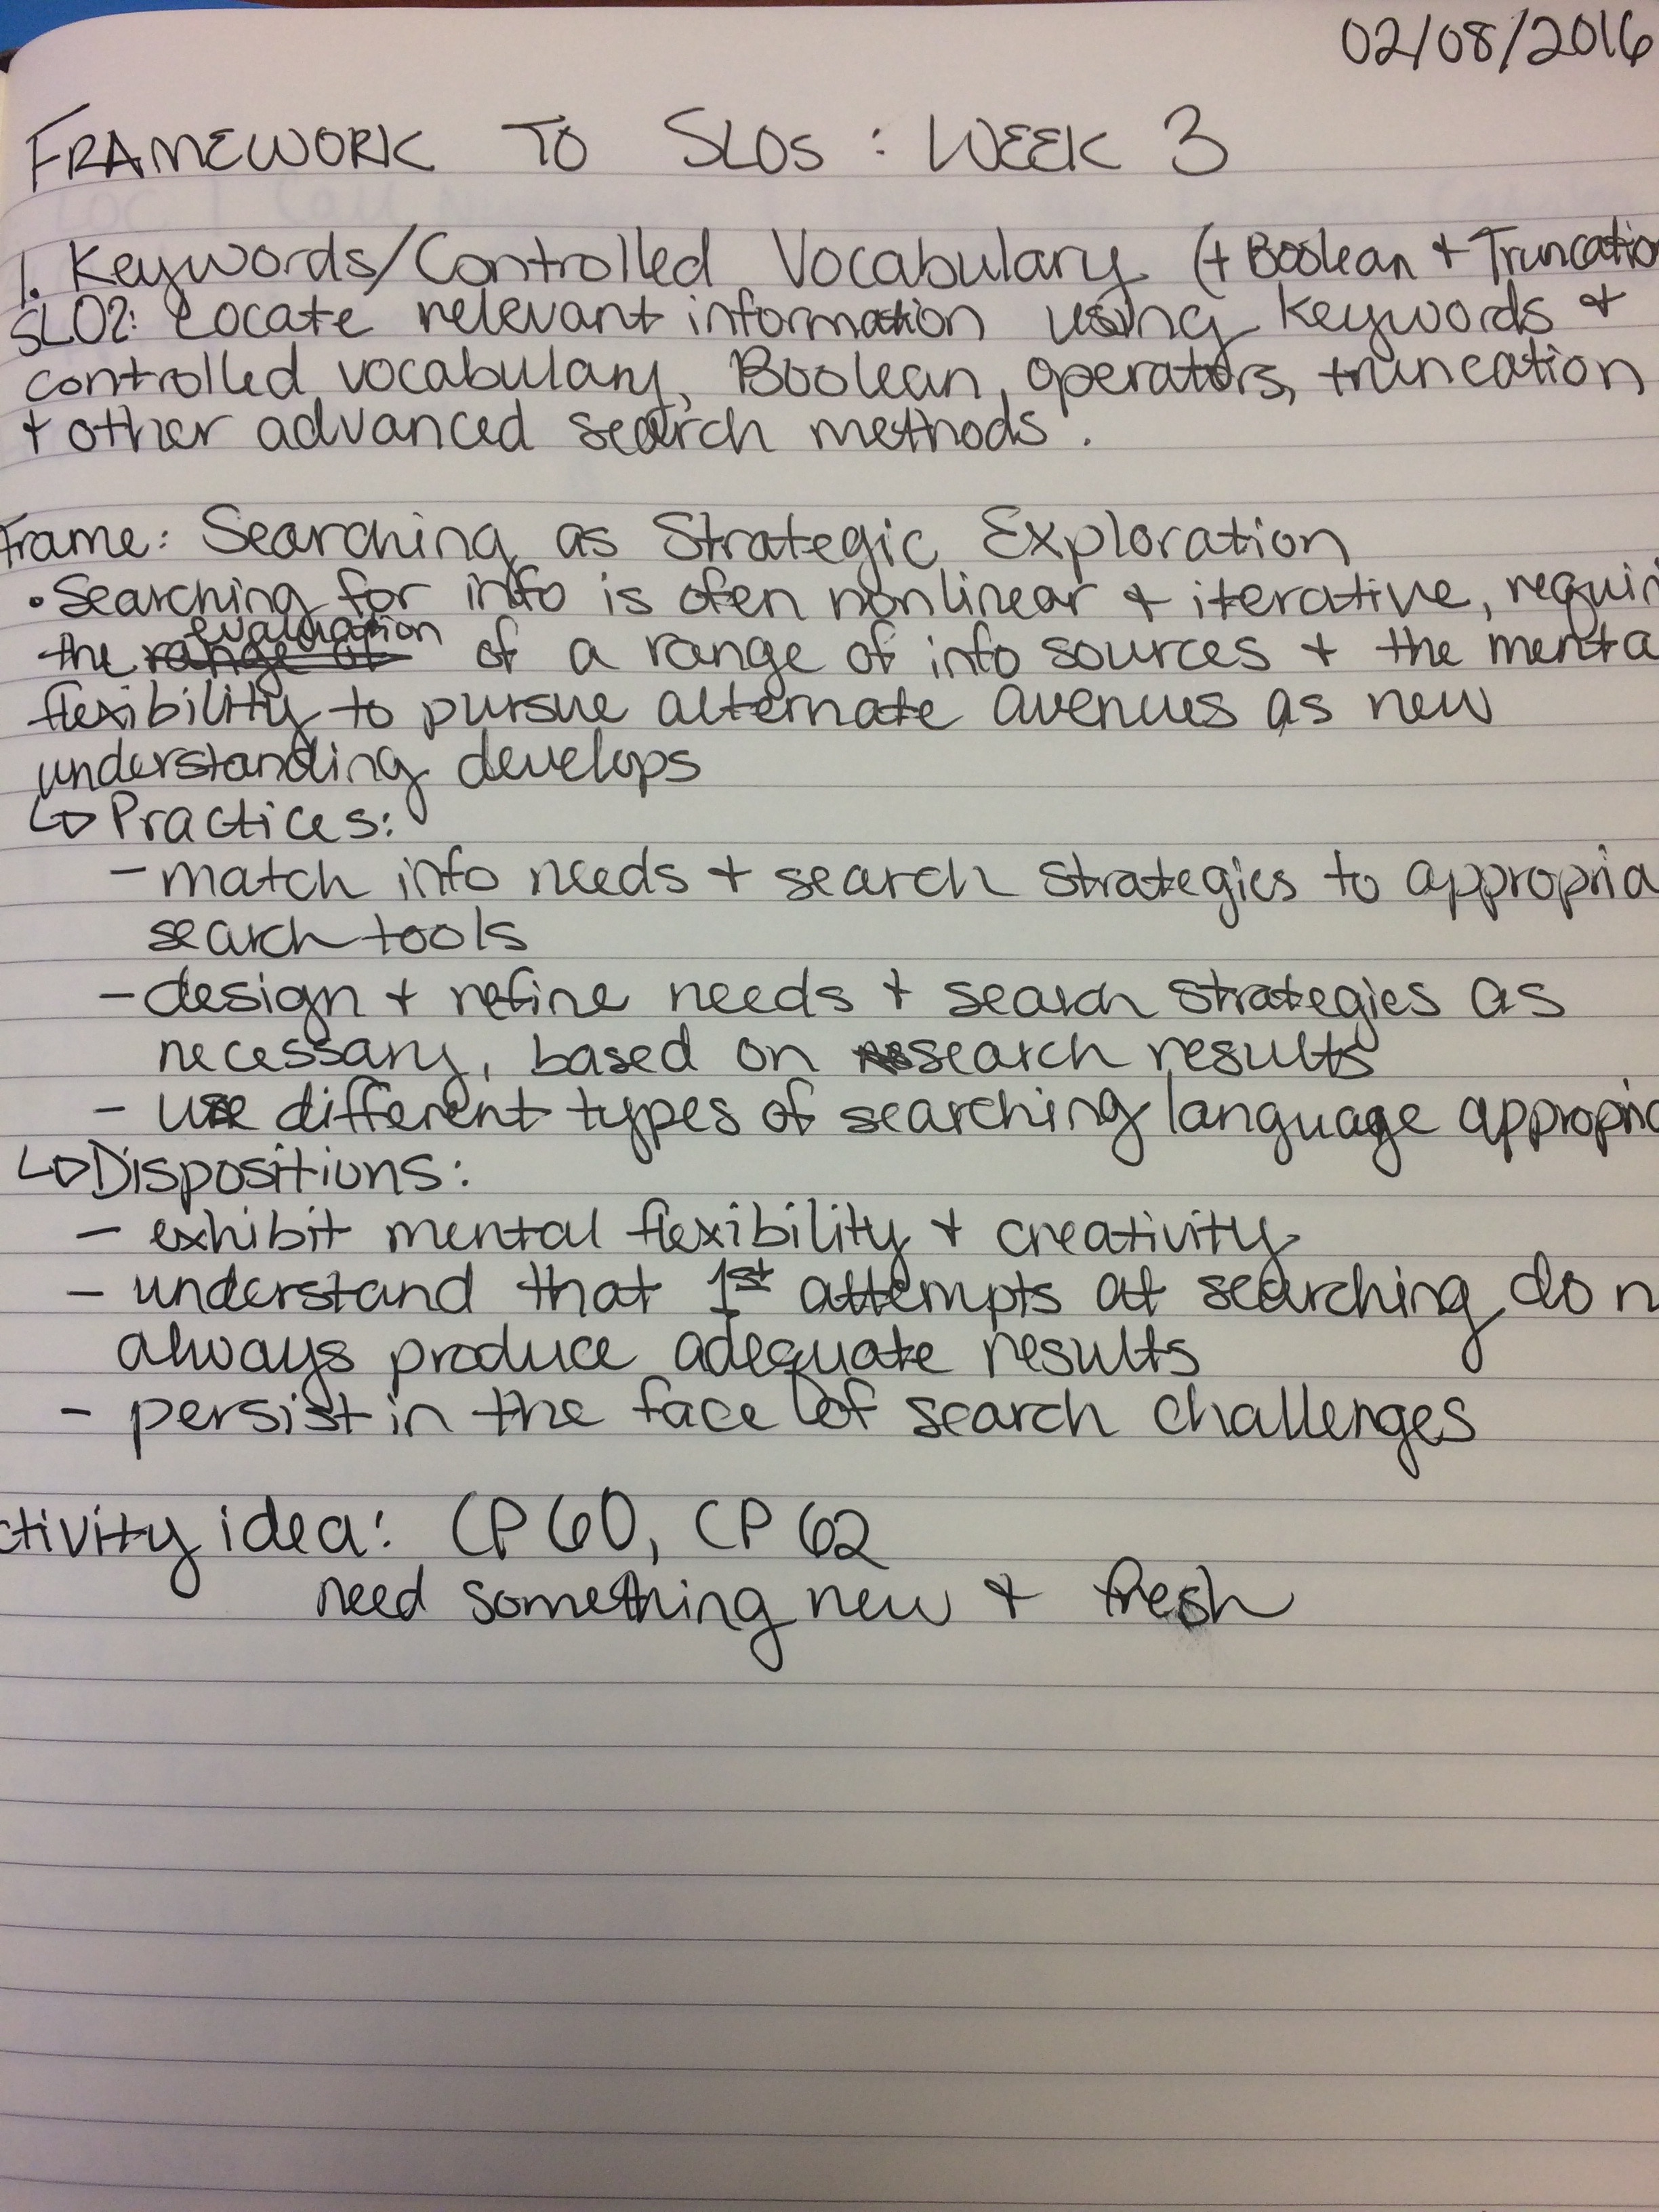 02/08/2016
FRAMEWORK TO SLOs : WEEK 3
1. Keywords/Controlled Vocabulary (+ Boolean + Truncatio
SLO2: Locate relevant information using keywords +
controlled vocabulary, Boolean, operators, truncation
+ other advanced search methods.
Frame: Searching as Strategic Exploration
• Searching for info is ofen nonlinear + iterative, requiri
the range of evaluation of a range of info sources + the menta
flexibility to pursue alternate avenues as new
understanding develops
↳ Practices:
- match info needs + search strategies to appropria
search tools
- design + refine needs + search strategies as
necessary, based on search results
- use different types of searching language appropria
↳ Dispositions:
- exhibit mental flexibility + creativity
- understand that 1st attempts at searching do n
always produce adequate results
- persist in the face of search challenges
ctivity idea: CP 60, CP 62
need something new + fresh